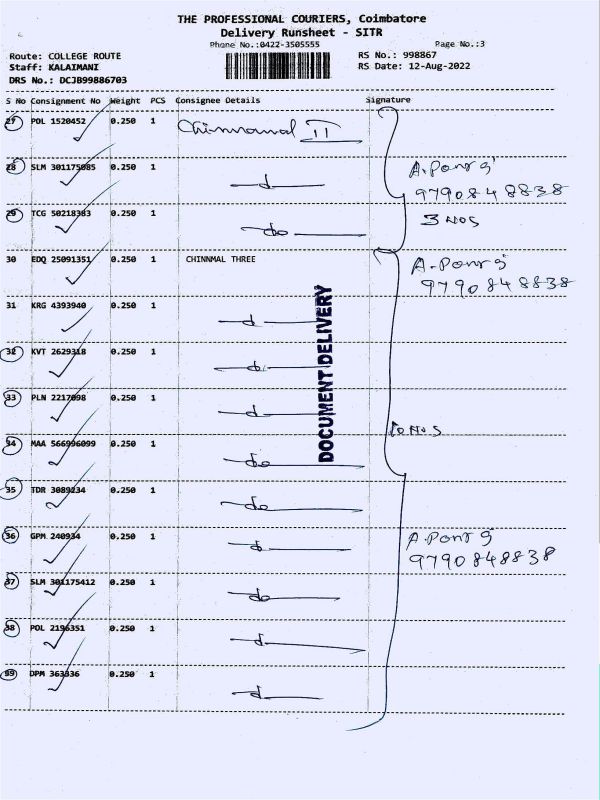 THE PROFESSIONAL COURIERS, Coimbatore
Delivery Runsheet - SITR
Phone No.:0422-3505555 Page No.:3
Route: COLLEGE ROUTE RS No.: 998867
Staff: KALAIMANI RS Date: 12-Aug-2022
DRS No.: DCJB99886703
S No Consignment No Weight PCS Consignee Details Signature
27 POL 1520452 0.250 1 Chinnamal II
28 SLM 301175085 0.250 1 do
A. Ponraj
9790848838
29 TCG 50218383 0.250 1 do 3 NOS
30 EDQ 25091351 0.250 1 CHINNMAL THREE
A. Ponraj
9790848838
31 KRG 4393940 0.250 1 do
32 KVT 2629318 0.250 1 do
33 PLN 2217098 0.250 1 do
10 NOS
34 MAA 566996099 0.250 1 do
35 TDR 3089234 0.250 1 do
36 GPM 240934 0.250 1 do
A. Ponraj
9790848838
37 SLM 301175412 0.250 1 do
38 POL 2196351 0.250 1 do
39 DPM 363336 0.250 1 do
DOCUMENT DELIVERY